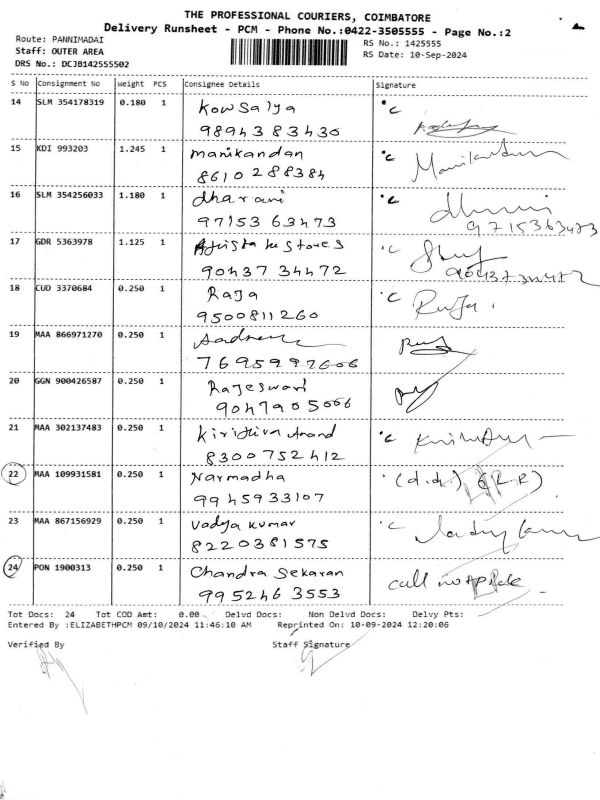 THE PROFESSIONAL COURIERS, COIMBATORE
Delivery Runsheet - PCM - Phone No.:0422-3505555 - Page No.:2
Route: PANNIMADAI
RS No.: 1425555
Staff: OUTER AREA
RS Date: 10-Sep-2024
DRS No.: DCJB142555502
S No Consignment No Weight PCS Consignee Details Signature
14 SLM 354178319 0.180 1 Kowsalya
9894383430
15 KDI 993203 1.245 1 manikandan
8610288384
16 SLM 354256033 1.180 1 dharani
9715363473
9715363473
17 GDR 5363978 1.125 1 Stores
9043734472
9043734472
18 CUD 3370684 0.250 1 Raja
9500811260
19 MAA 866971270 0.250 1
7695997606
20 GGN 900426587 0.250 1 Rajeswari
9047905006
21 MAA 302137483 0.250 1 Anand
8300752412
22 MAA 109931581 0.250 1 Narmadha
9945933107
23 MAA 867156929 0.250 1 Vadya kumar
8220381575
24 PON 1900313 0.250 1 Chandra Sekaran call
9952463553
Tot Docs: 24 Tot COD Amt: 0.00 Delvd Docs: Non Delvd Docs: Delvy Pts:
Entered By :ELIZABETHPCM 09/10/2024 11:46:10 AM Reprinted On: 10-09-2024 12:20:06
Verified By Staff Signature